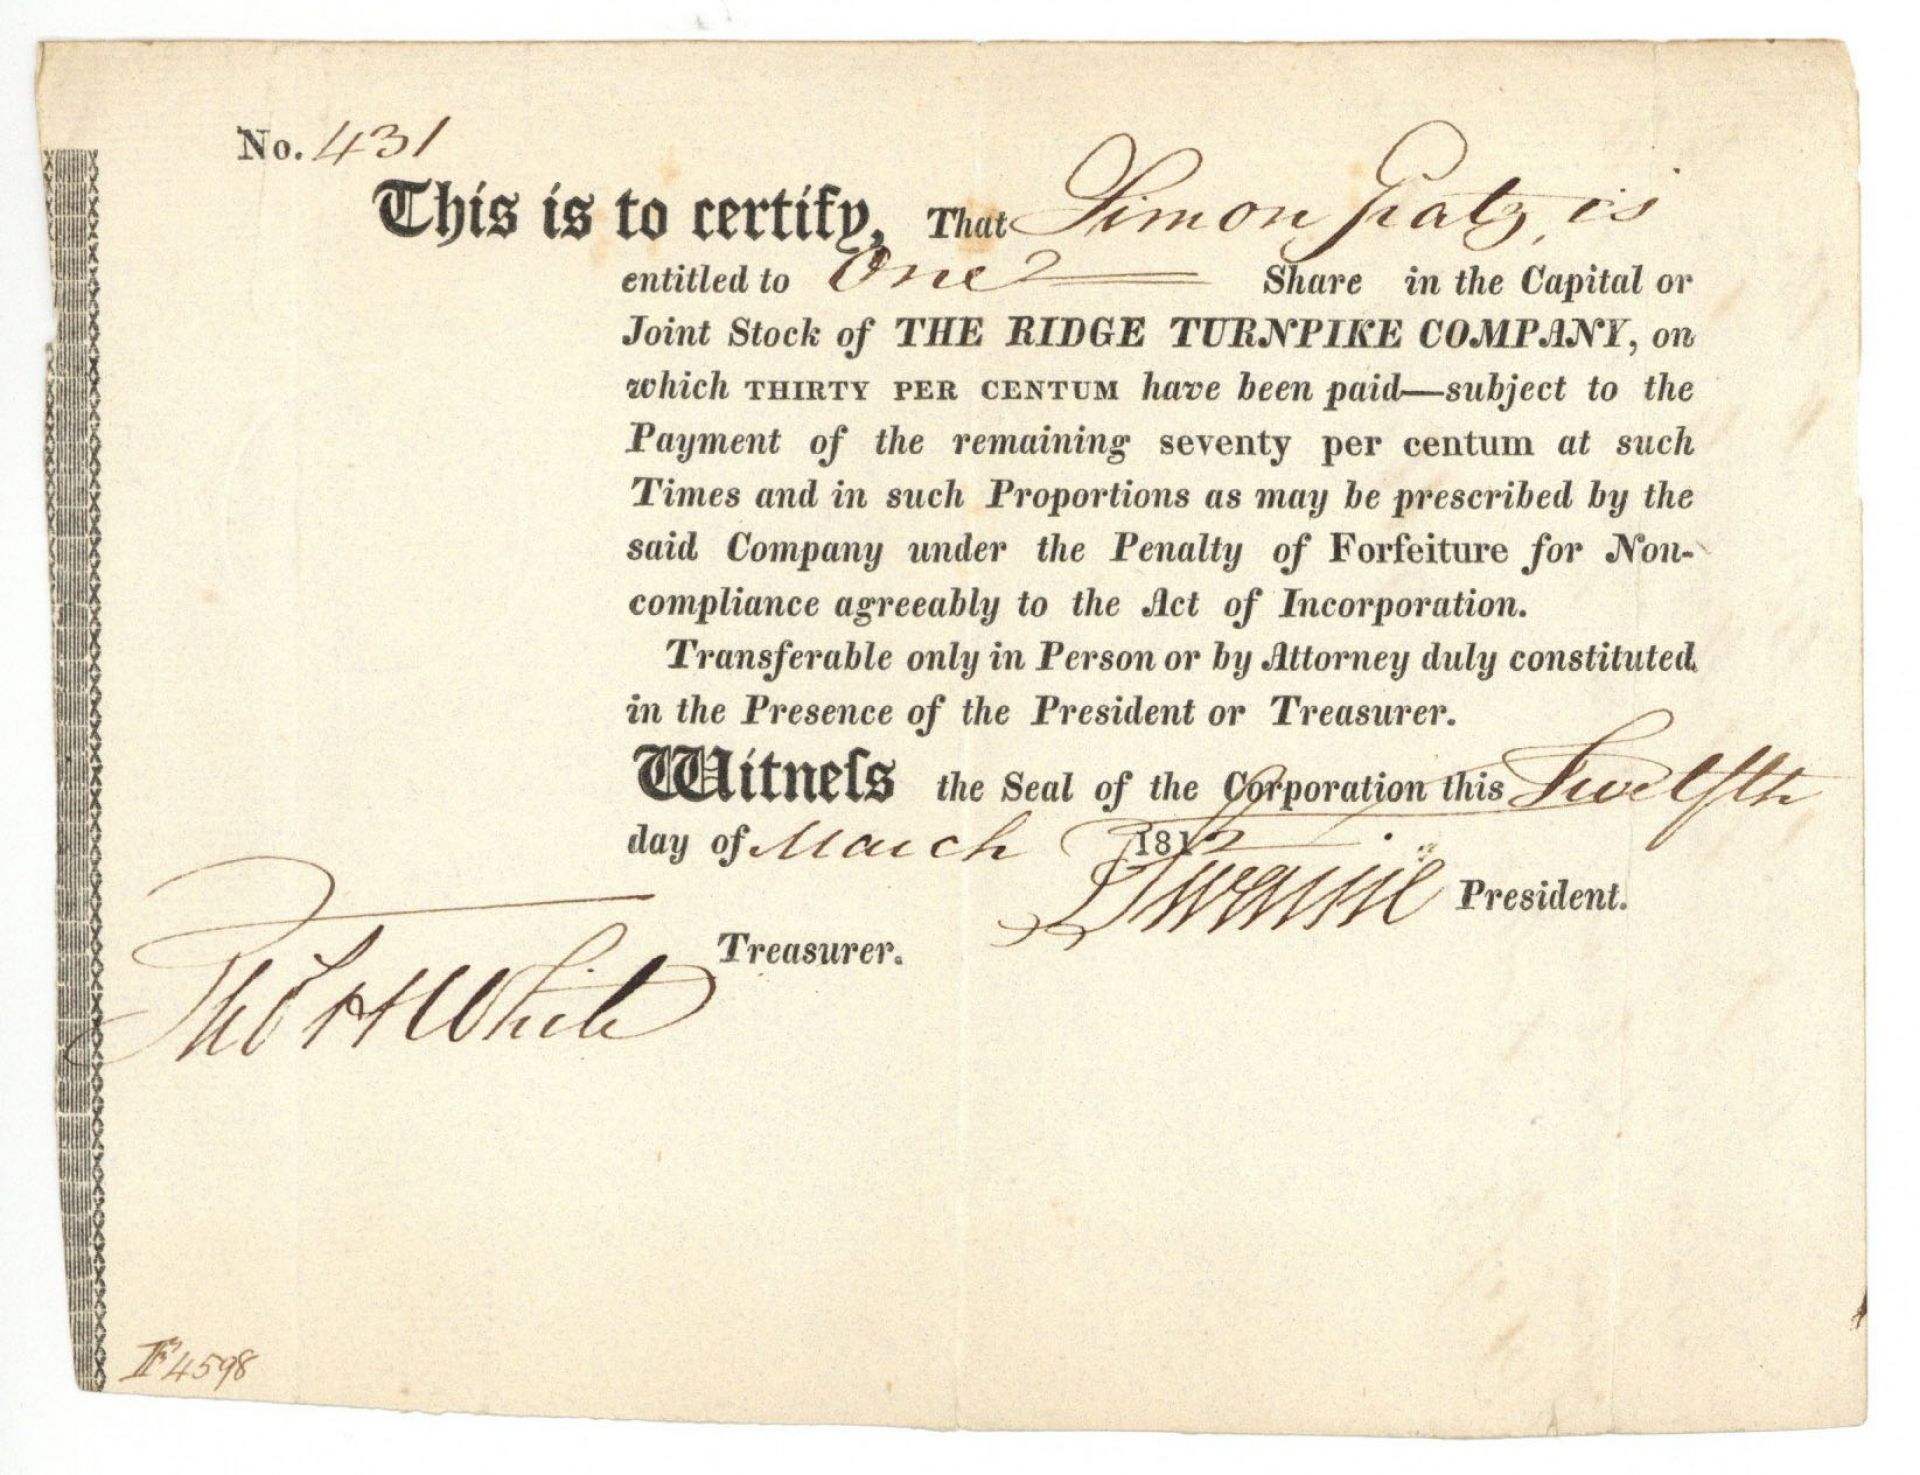 No. 431
This is to certify, That Simon Gratz, is
entitled to One Share in the Capital or
Joint Stock of THE RIDGE TURNPIKE COMPANY, on
which THIRTY PER CENTUM have been paid—subject to the
Payment of the remaining seventy per centum at such
Times and in such Proportions as may be prescribed by the
said Company under the Penalty of Forfeiture for Non-
compliance agreeably to the Act of Incorporation.
Transferable only in Person or by Attorney duly constituted
in the Presence of the President or Treasurer.
Witneſs the Seal of the Corporation this Twelfth
day of March 1812
President.
Treasurer.
Thos H White
F4598